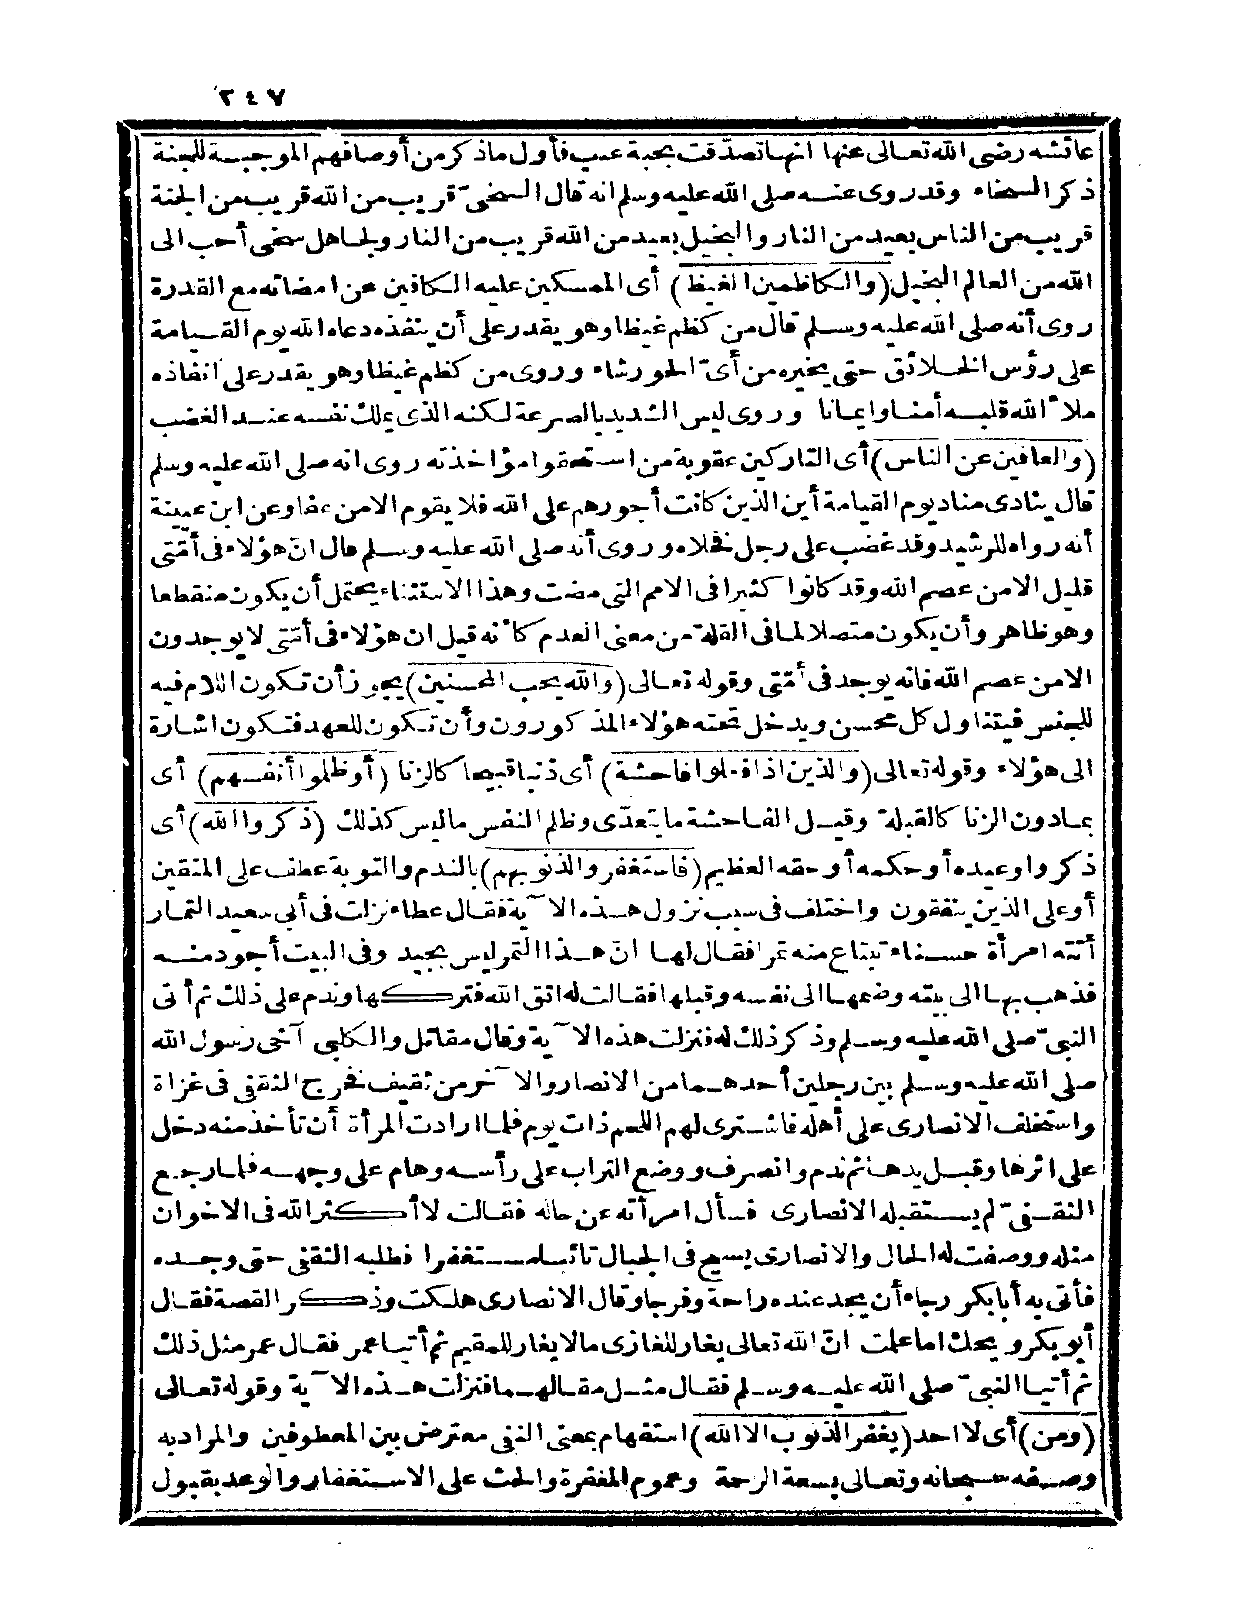 ٢٤٧
عائشه رضى الله تعالى عنها انها تصدّقت بحبة عنب فأول ماذكر من أوصافهم الموجبة للجنة
ذكر السخاء وقد روى عنه صلى الله عليه وسلم انه قال السخىّ قريب من الله قريب من الجنة
قريب من الناس بعيد من النار والبخيل بعيد من الله قريب من النار ولجاهل سخى أحب الى
الله من العالم البخيل (والكاظمين الغيظ) أى الممسكين عليه الكافين عن امضائه مع القدرة
روى أنه صلى الله عليه وسلم قال من كظم غيظا وهو يقدر على أن ينفذه دعاه الله يوم القيامة
على رؤس الخلائق حتى يخيره من أىّ الحور شاء وروى من كظم غيظا وهو يقدر على انفاذه
ملأ الله قلبه أمنا وايمانا وروى ليس الشديد بالصرعة لكنه الذى يملك نفسه عند الغضب
(والعافين عن الناس) أى التاركين عقوبة من استحقوا مؤاخذته روى انه صلى الله عليه وسلم
قال ينادى مناد يوم القيامة أين الذين كانت أجورهم على الله فلا يقوم الا من عفا وعن ابن عيينة
أنه رواه للرشيد وقد غضب على رجل فخلاه وروى أنه صلى الله عليه وسلم قال انّ هؤلاء فى أمّتى
قليل الا من عصم الله وقد كانوا كثيرا فى الامم التى مضت وهذا الاستثناء يحتمل أن يكون منقطعا
وهو ظاهر وأن يكون متصلا لما فى القلة من معنى العدم كأنه قيل ان هؤلاء فى أمّتى لا يوجدون
الا من عصم الله فانه يوجد فى أمّتى وقوله تعالى (والله يحب المحسنين) يجوز أن تكون اللام فيه
للجنس فيتناول كل محسن ويدخل تحته هؤلاء المذكورون وأن تكون للعهد فتكون اشارة
الى هؤلاء وقوله تعالى (والذين اذا فعلوا فاحشة) أى ذنبا قبيحا كالزنا (أو ظلموا أنفسهم) أى
بمادون الزنا كالقبلة وقيل الفاحشة ما يتعدّى وظلم النفس ما ليس كذلك (ذكروا الله) أى
ذكروا وعيده أو حكمه أو حقه العظيم (فاستغفروا لذنوبهم) بالندم والتوبة عطف على المتقين
أو على الذين ينفقون واختلف فى سبب نزول هذه الآية فقال عطاء نزلت فى أبى سعيد التمار
أتته امرأة حسناء تبتاع منه تمرا فقال لها انّ هذا التمر ليس بجيد وفى البيت أجود منه
فذهب بها الى بيته وضمها الى نفسه وقبلها فقالت له اتق الله فتركها وندم على ذلك ثم أتى
النبىّ صلى الله عليه وسلم وذكر ذلك له فنزلت هذه الآية وقال مقاتل والكلبى آخى رسول الله
صلى الله عليه وسلم بين رجلين أحدهما من الانصار والآخر من ثقيف فخرج الثقفى فى غزاة
واستخلف الانصارى على أهله فاشترى لهم اللحم ذات يوم فلما ارادت المرأة أن تأخذ منه دخل
على اثرها وقبل يدها ثم ندم وانصرف ووضع التراب على رأسه وهام على وجهه فلما رجع
الثقفىّ لم يستقبله الانصارى فسأل امرأته عن حاله فقالت لا أكثر الله فى الاخوان
مثله ووصفت له الحال والانصارى يسيح فى الجبال تائبا مستغفرا فطلبه الثقفى حتى وجده
فأتى به أبا بكر رجاء أن يجد عنده راحة وفرجا وقال الانصارى هلكت وذكر القصة فقال
أبو بكر ويحك اما علمت انّ الله تعالى يغار للغازى ما لا يغار للمقيم ثم أتيا عمر فقال عمر مثل ذلك
ثم أتيا النبىّ صلى الله عليه وسلم فقال مثل مقالهما فنزلت هذه الآية وقوله تعالى
(ومن) أى لا احد (يغفر الذنوب الا الله) استفهام بمعنى النفى معترض بين المعطوفين والمراد به
وصفه سبحانه وتعالى بسعة الرحمة وعموم المغفرة والحث على الاستغفار والوعد بقبول